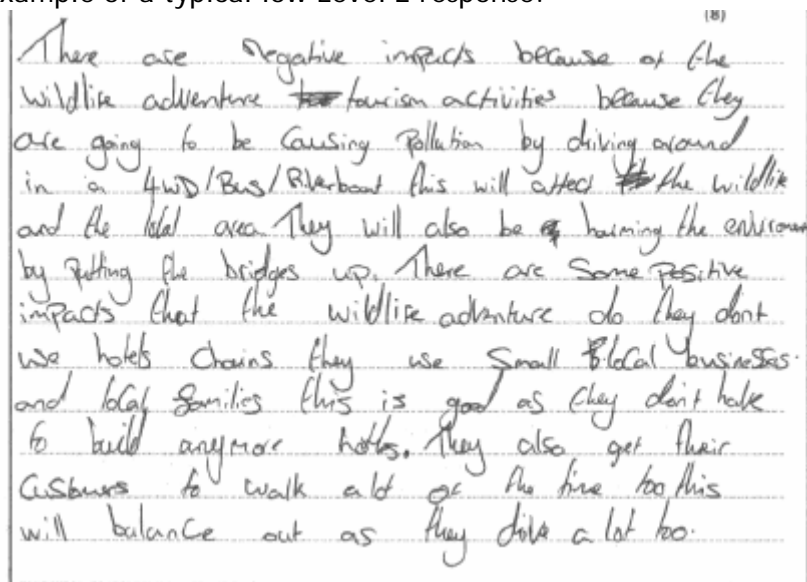 example of a typical low Level 2 response:
(8)
There are negative impacts because of the
wildlife adventure tourism activities because they
are going to be causing pollution by driving around
in a 4WD/Bus/Riverboat this will affect the wildlife
and the local area. They will also be harming the enviroment
by putting the bridges up. There are some positive
impacts that the wildlife adventure do they dont
use hotels chains they use small local businesses.
and local families this is good as they don't have
to build anymore hotels. They also get their
customers to walk a lot of the time too this
will balance out as they drive a lot too.